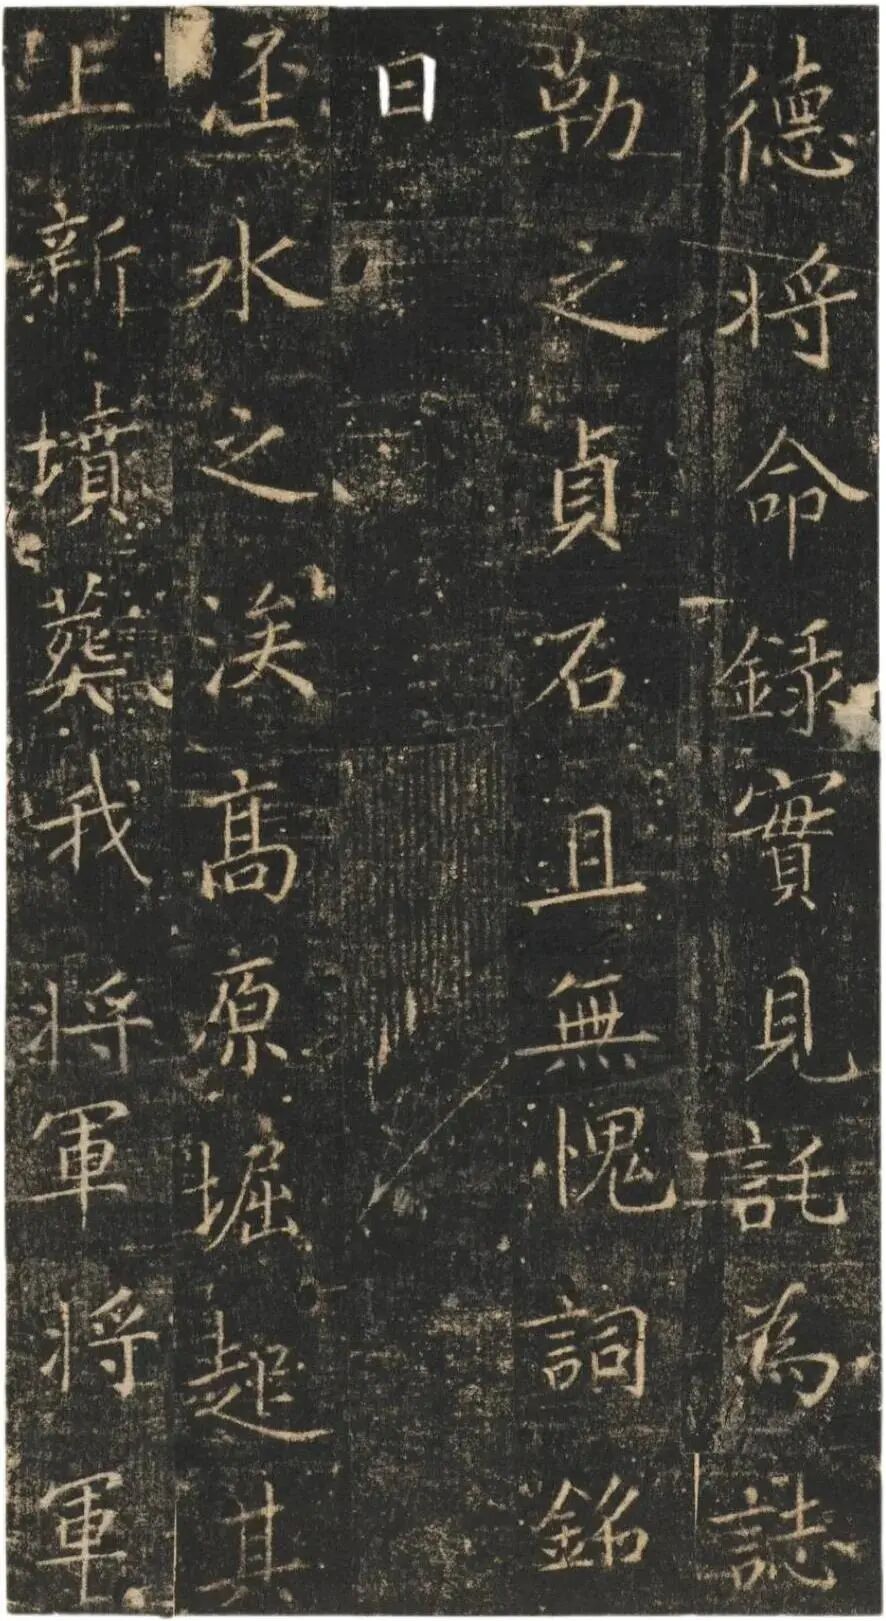 德将命錄實見託為誌
勒之貞石且無愧詞銘
曰
丕水之涘高原堀起其
上新墳葬我将軍将軍